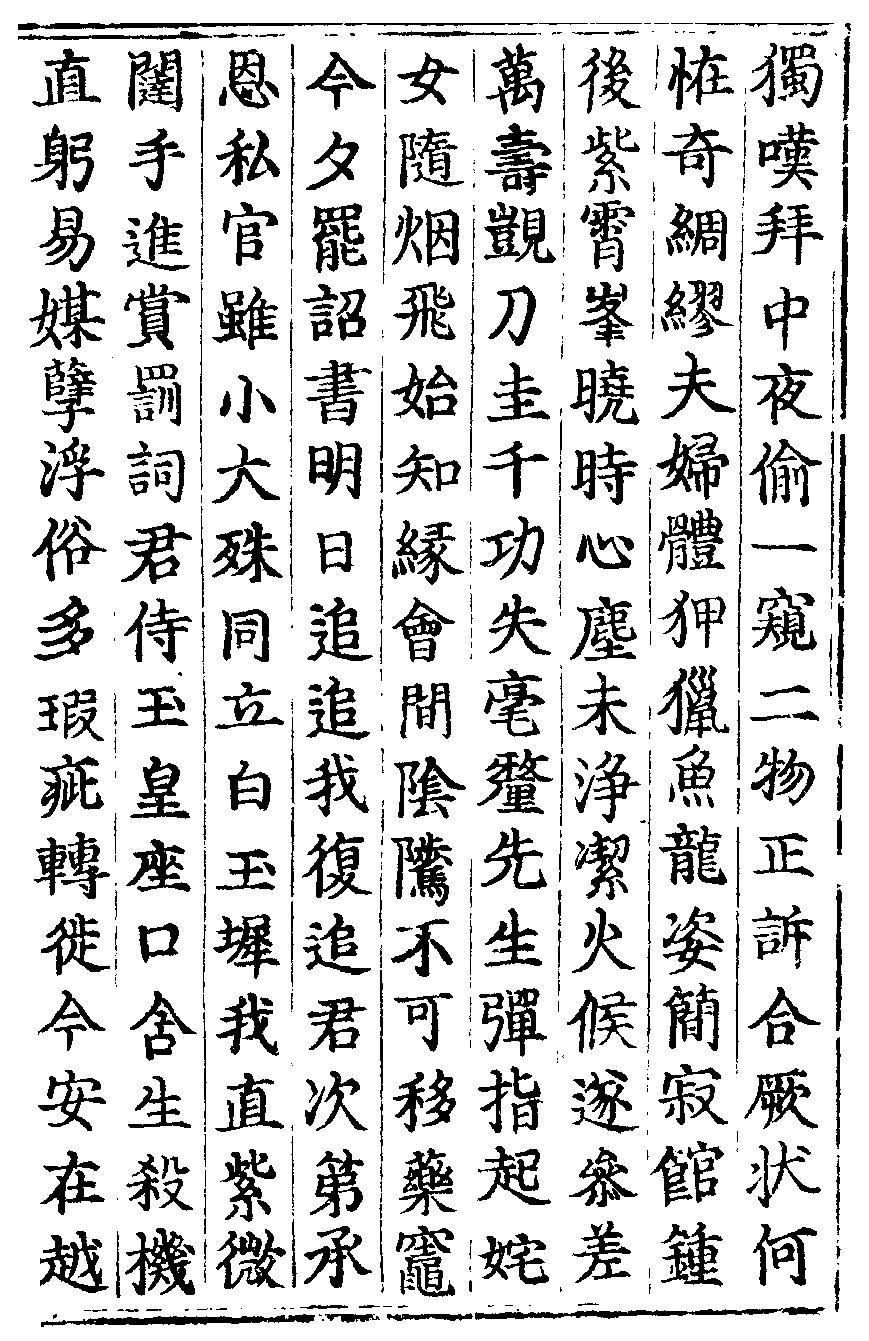 獨嘆拜中夜偷一窺二物正訴合厥狀何
恠奇綢繆夫婦體狎獵魚龍姿簡寂館鍾
後紫霄峯曉時心塵未淨潔火候遂叅差
萬壽覬刀圭千功失毫𨤲先生彈指起姹
女隨烟飛始知緣會間陰隲不可移藥竈
今夕罷詔書明日追追我復追君次第承
恩私官雖小大殊同立白玉墀我直紫微
闥手進賞罰詞君侍玉皇座口含生殺機
直躬易媒孽浮俗多瑕疵轉徙今安在越